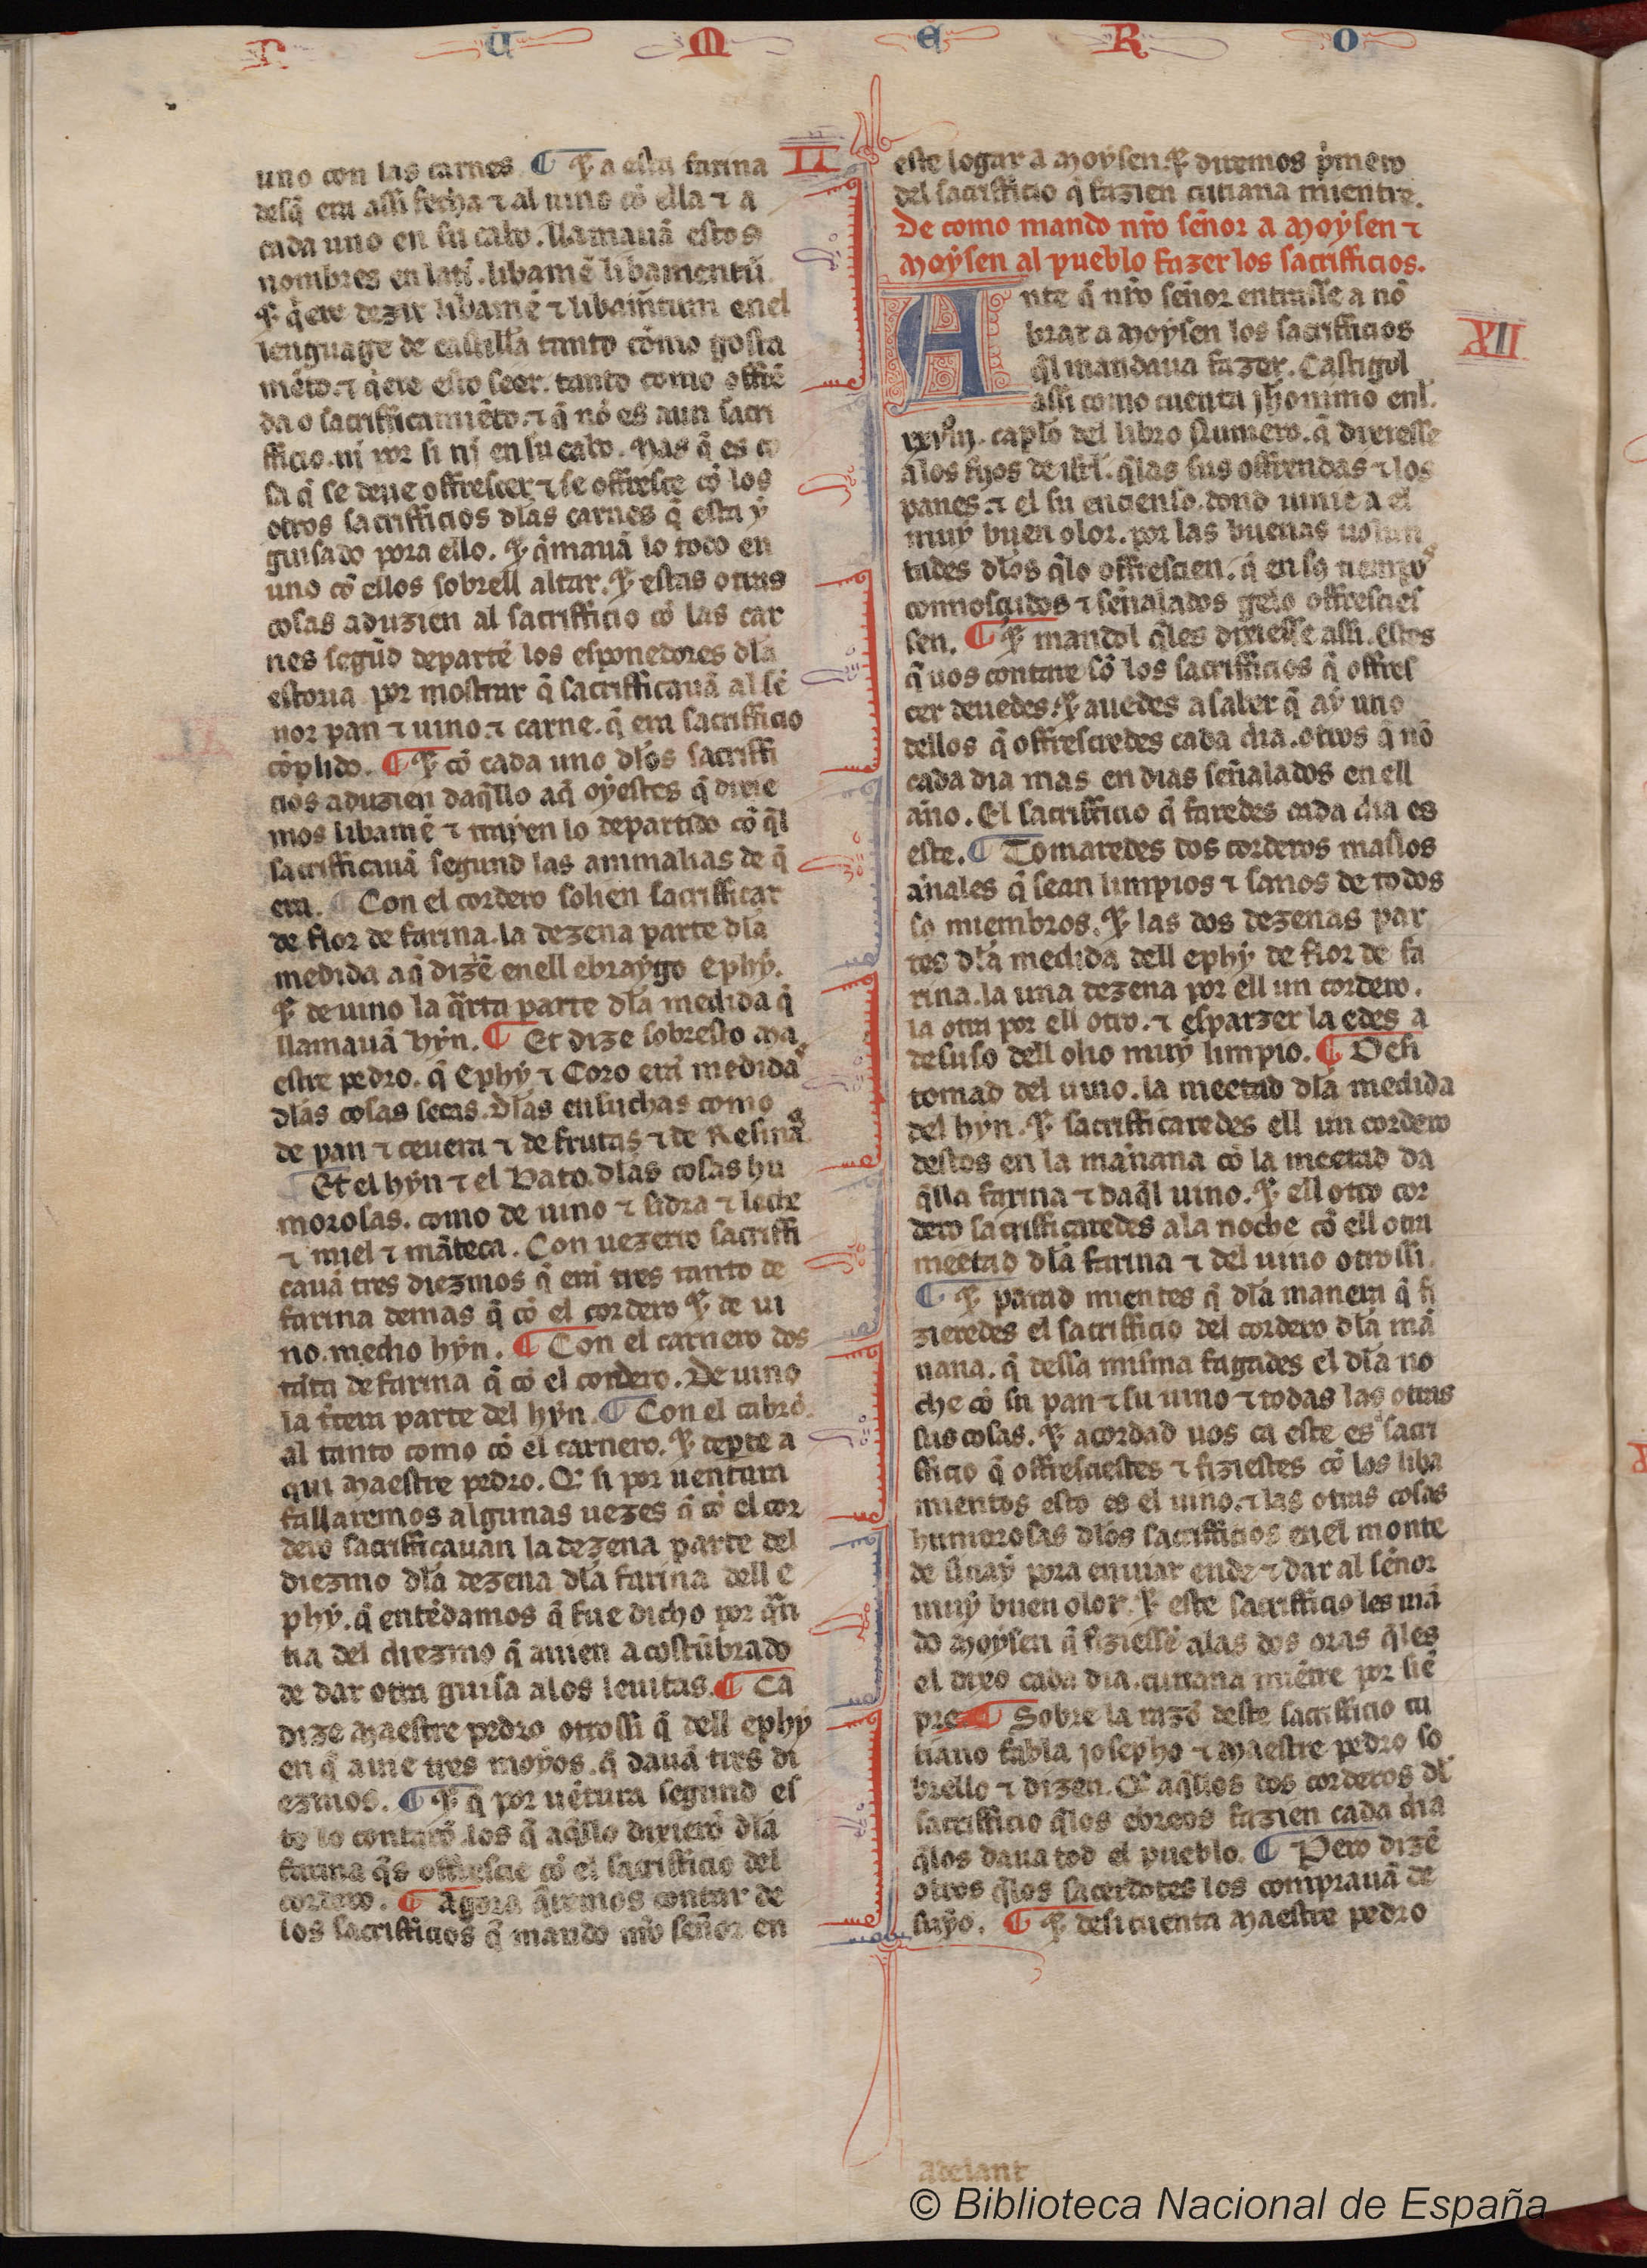 N U M E R O
uno con las carnes ¶ ⁊ a esta farina
desq̃ era assi fecha ⁊ al uino cõ ella ⁊ a
cada uno en su cabo. llamauã estos
nombres en latĩ. libamẽ libamentũ
⁊ q̃ere dezir libamẽ ⁊ libam̃tum enel
lenguage de castilla tanto cõmo gosta
mẽto. ⁊ q̃ere esto seer. tanto como offrẽ
da o sacrifficamiẽto. ⁊ q̃ nõ es aun sacri
fficio. ni por si nj en su cabo. Mas q̃ es co
sa q̃ se deue offrescer ⁊ se offresce cõ los
otros sacrifficios dlas carnes q̃ esta ẏ
guisado pora ello. ⁊ q̃mauã lo todo en
uno cõ ellos sobrell altar. ⁊ estas otras
cosas aduzien al sacrifficio cõ las car
nes segũd departẽ los esponedores dla
estoria por mostrar q̃ sacrifficauã al sẽ
nor pan ⁊ uino. ⁊ carne. q̃ era sacrifficio
cõplido. ¶ ⁊ cõ cada uno dlos sacriffi
cios aduzien daq̃llo aq̃ oẏestes q̃ dixie
mos libamẽ ⁊ traẏen lo departido cõ q̃l
sacrifficauã segund las animalias de q̃
era. ¶ Con el cordero solien sacrifficar
de flor de farina. la dezena parte dla
medida aq̃ dizẽ enell ebraẏgo ephẏ.
⁊ de uino la q̃rta parte dla medida q̃
llamauã hẏn. ¶ Et dize sobresto Ma
estre pedro. q̃ Ephẏ ⁊ Coro erã medidas
dlas cosas secas. dlas ensuchas como
de pan ⁊ ceuera ⁊ de frutas ⁊ de Resinas
¶ Et el hẏn ⁊ el Bato. dlas cosas hu
morosas. como de uino ⁊ sidra ⁊ leche
⁊ miel ⁊ mãteca. Con uezerro sacriffi
cauã tres diezmos q̃ erã tres tanto de
farina demas q̃ cõ el cordero ⁊ de ui
no. medio hẏn. ¶ Con el carnero dos
tãta de farina q̃ cõ el cordero. De uino
la t̃cera parte del hẏn. ¶ Con el cabrõ.
al tanto como cõ el carnero. ⁊ depte a
qui Maestre pedro. Q̃ si por uentura
fallaremos algunas uezes q̃ cõ el cor
dero sacrifficauan la dezena parte del
diezmo dla dezena dla farina dell e
phẏ. q̃ entẽdamos q̃ fue dicho por q̃n
tia del diezmo q̃ auien acostũbrado
de dar otra guisa alos leuitas. ¶ Ca
dize Maestre pedro otrossi q̃ dell ephẏ
en q̃ auie tres moẏos. q̃ dauã tres di
ezmos. ¶ ⁊ q̃ por uẽtura segund es
to lo contarõ los q̃ aq̃llo dixierõ dla
farina q̃s offrescie cõ el sacrifficio del
cordero. ¶ Agora q̃remos contar de
los sacrifficios q̃ mando nr̃o señor en
II
este logar a Moẏsen. ⁊ diremos p̃mero
del sacrifficio q̃ fazien cutiana mientre.
De como mando nr̃o señor a Moẏsen ⁊
Moẏsen al pueblo fazer los sacrifficios.
Ante q̃ nr̃o señor entrasse a nõ
brar a Moẏsen los sacrifficios
q̃l mandaua fazer. Castigol
assi como cuenta jheronimo enl.
XII
xxviijº. caplo del libro Numero. q̃ dixiesse
alos fijos de isrl. q̃las sus offrendas ⁊ los
panes. ⁊ el su encienso. dond uinie a el
muẏ buen olor. por las buenas uolun
tades dlos q̃lo offrescien. q̃ en sos tiempos
connosçidos ⁊ señalados gelo offrescies
sen. ¶ ⁊ mandol q̃les dixiesse assi. Estos
q̃ uos contare sõ los sacrifficios q̃ offres
cer deuedes. ⁊ auedes a saber q̃ aẏ uno
dellos q̃ offresciredes cada dia. otros q̃ nõ
cada dia mas en dias señalados enell
año. El sacrifficio q̃ faredes cada dia es
este. ¶ Tomaredes dos corderos maslos
añales q̃ sean limpios ⁊ sanos de todos
so miembros. ⁊ las dos dezenas par
tes dla medida dell ephẏ de flor de fa
rina. la una dezena por ell un cordero.
la otra por ell otro. ⁊ esparzer la edes a
desuso dell olio muẏ limpio. ¶ Desi
tomad del uino. la meetad dla medida
del hẏn. ⁊ sacrifficaredes ell un cordero
destos en la mañana cõ la meetad da
q̃lla farina ⁊ daq̃l uino. ⁊ ell otro cor
dero sacrifficaredes ala noche cõ ell otra
meetad dla farina ⁊ del uino otrossi.
¶ ⁊ parad mientes q̃ dla manera q̃ fi
zieredes el sacrifficio del cordero dla mã
nana. q̃ dessa misma fagades el dla no
che cõ su pan ⁊ su uino ⁊ todas las otras
sus cosas. ⁊ acordad uos ca este es sacri
fficio q̃ offresciestes ⁊ fiziestes cõ los liba
mientos esto es el uino. ⁊ las otras cosas
humorosas dlos sacrifficios enel monte
de sinaẏ pora enuiar ende ⁊ dar al señor
muẏ buen olor. ⁊ este sacrifficio les mã
do Moysen q̃ fiziessẽ alas dos oras q̃les
el dixo cada dia. cutiana miẽtre por siẽ
pre ¶ Sobre la razõ deste sacrifficio cu
tiano fabla josepho ⁊ Maestre pedro so
brello ⁊ dizen. Q̃ aq̃llos dos corderos dl
sacrifficio q̃los ebreos fazien cada dia
q̃los daua tod el pueblo. ¶ Pero dizẽ
otros q̃los sacerdotes los comprauã de
suẏo. ¶ ⁊ desi cuenta Maestre pedro
Adelant
© Biblioteca Nacional de España